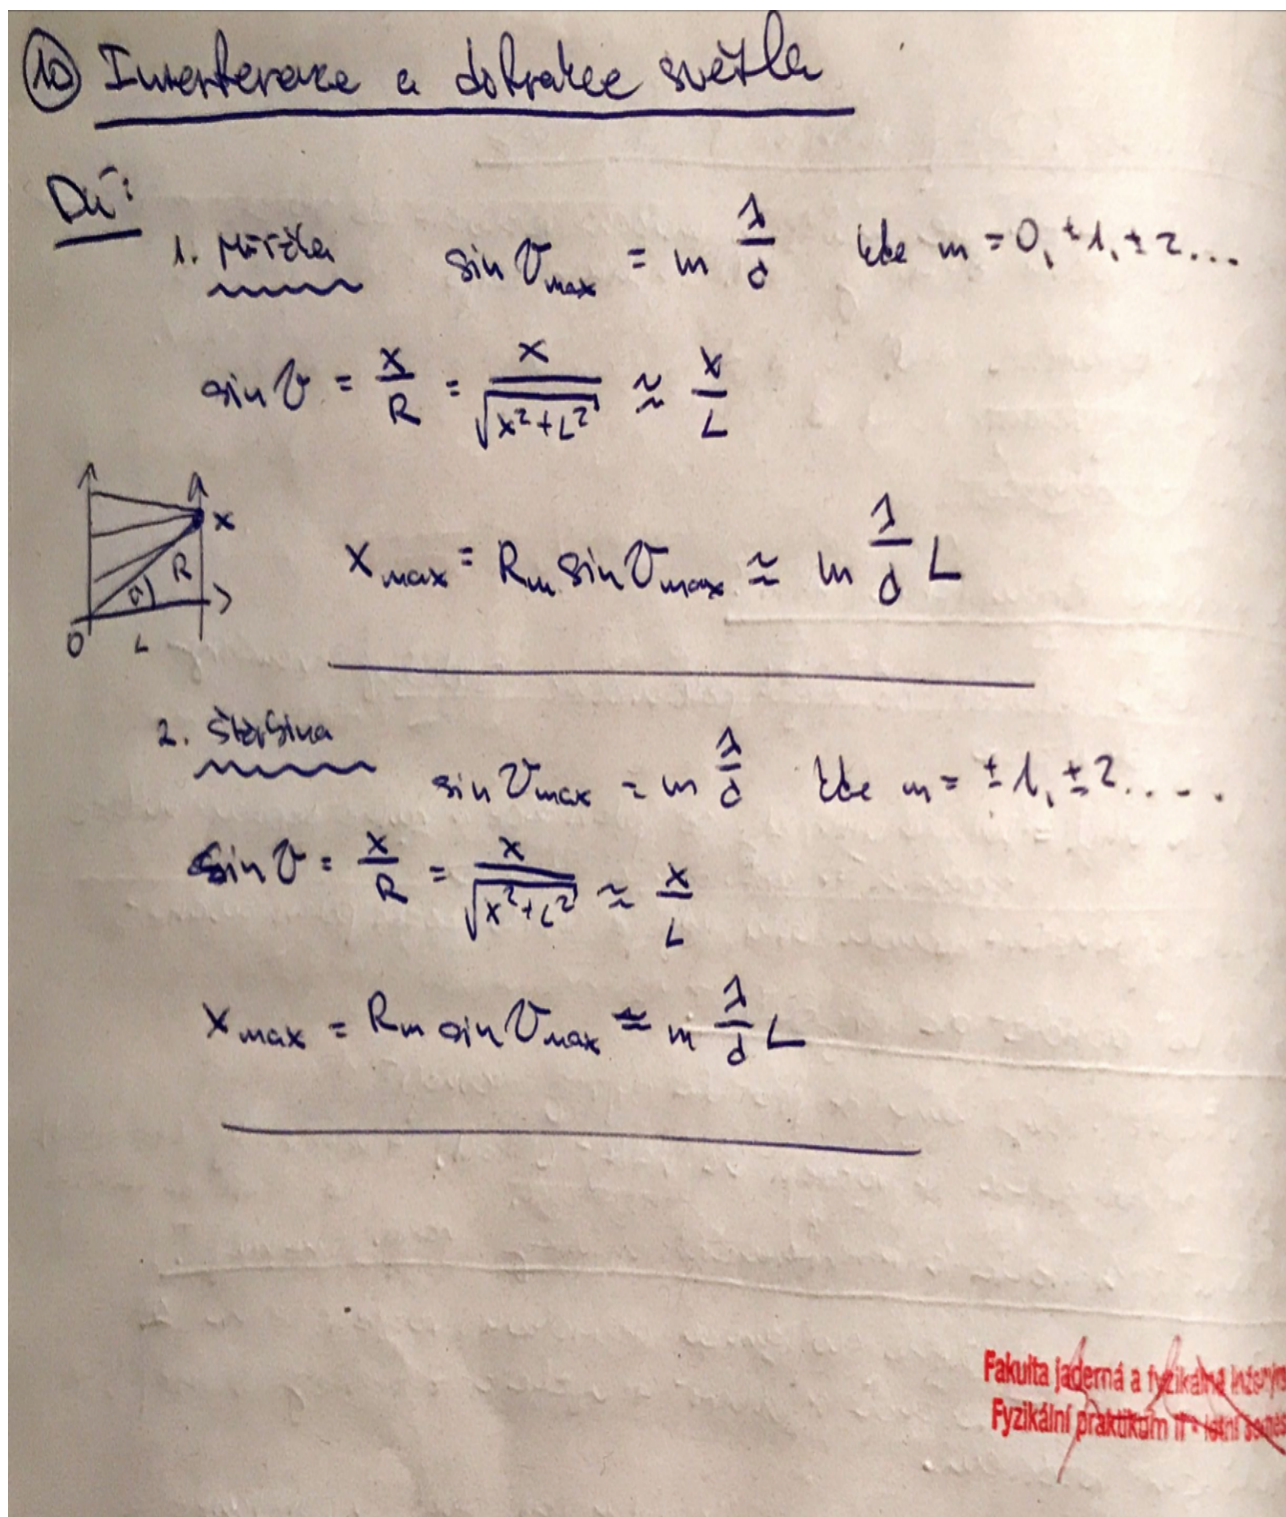 10 Interference a difrakce světla
DÚ:
1. Mřížka sin ϑmax = m λ/d kde m = 0, ±1, ±2...
sin ϑ = x/R = x/√(x²+L²) ≈ x/L
x
R
ϑ
0 L
xmax = Rm sin ϑmax ≈ m λ/d L
2. Štěrbina
sin ϑmax = m λ/d kde m = ±1, ±2....
sin ϑ = x/R = x/√(x²+L²) ≈ x/L
xmax = Rm sin ϑmax ≈ m λ/d L
Fakulta jaderná a fyzikálně
Fyzikální praktikum II - letní